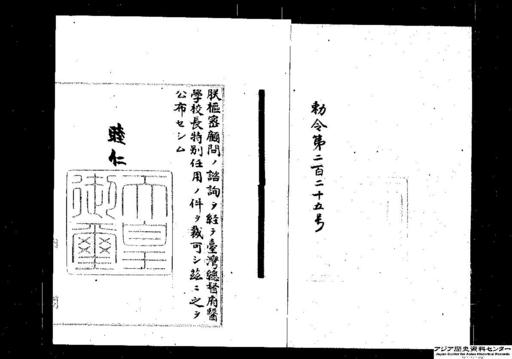 勅令第二百二十五号
朕樞密顧問ノ諮詢ヲ經テ臺灣總督府醫
學校長特別任用ノ件ヲ裁可シ茲ニ之ヲ
公布セシム
睦仁
天皇
御璽
アジア歴史資料センター
Japan Center for Asian Historical Records